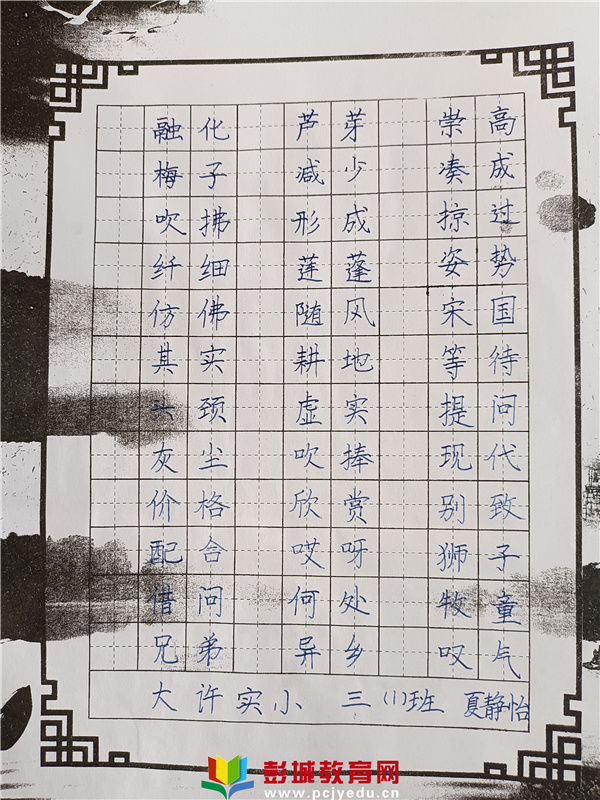 融化 芦芽 崇高
梅子 减少 凑成
吹拂 形成 掠过
纤细 莲蓬 姿势
仿佛 随风 宋国
其实 耕地 等待
头颈 虚实 提问
灰尘 吹捧 现代
价格 欣赏 别致
配合 哎呀 狮子
借问 何处 牧童
兄弟 异乡 叹气
大许实小 三(1)班 夏静怡
彭城教育网
www.pcjyedu.cn